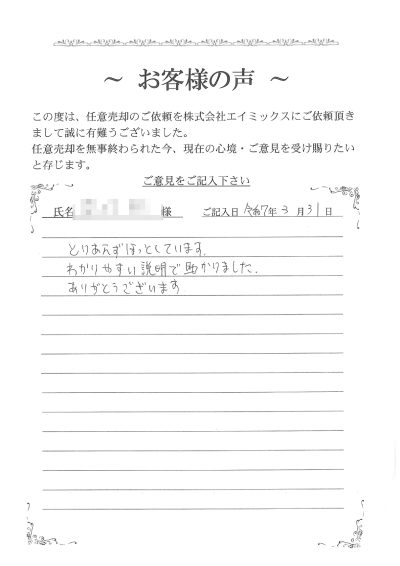 ～ お客様の声 ～
この度は、任意売却のご依頼を株式会社エイミックスにご依頼頂き
まして誠に有難うございました。
任意売却を無事終わられた今、現在の心境・ご意見を受け賜りたい
と存じます。
ご意見をご記入下さい
氏名 様 ご記入日 令和7年 3月 31日
とりあえずほっとしています。
わかりやすい説明で助かりました。
ありがとうございます